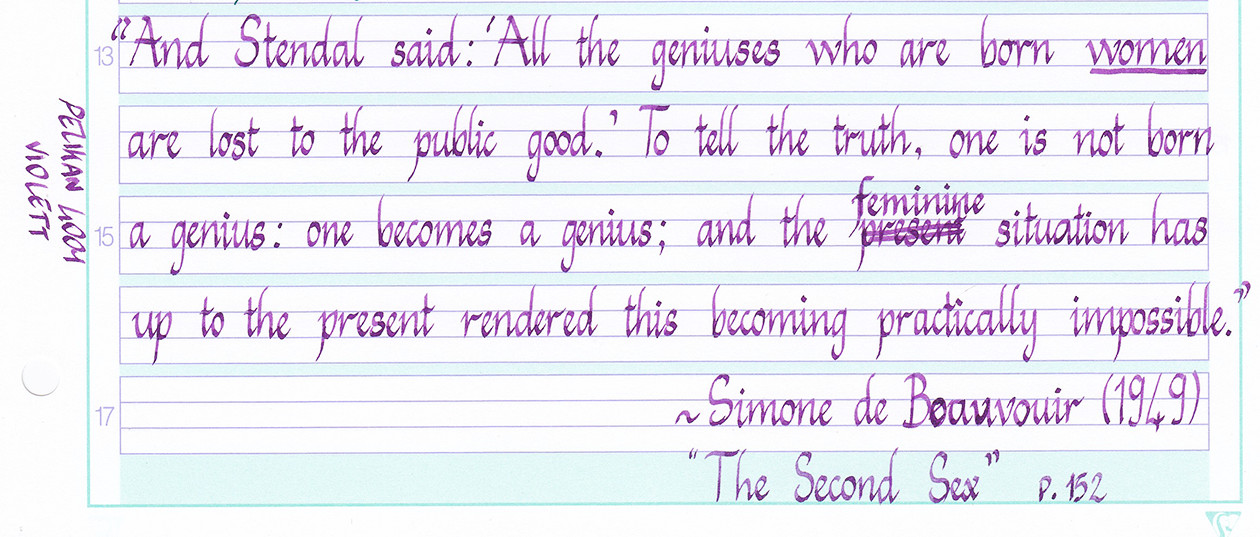 13 “And Stendal said: ‘All the geniuses who are born women
are lost to the public good.’ To tell the truth, one is not born
feminine
15 a genius: one becomes a genius; and the present situation has
up to the present rendered this becoming practically impossible.”
17 ~Simone de Beauvouir (1949)
“The Second Sex” P. 152
PELIKAN 4001
VIOLETT